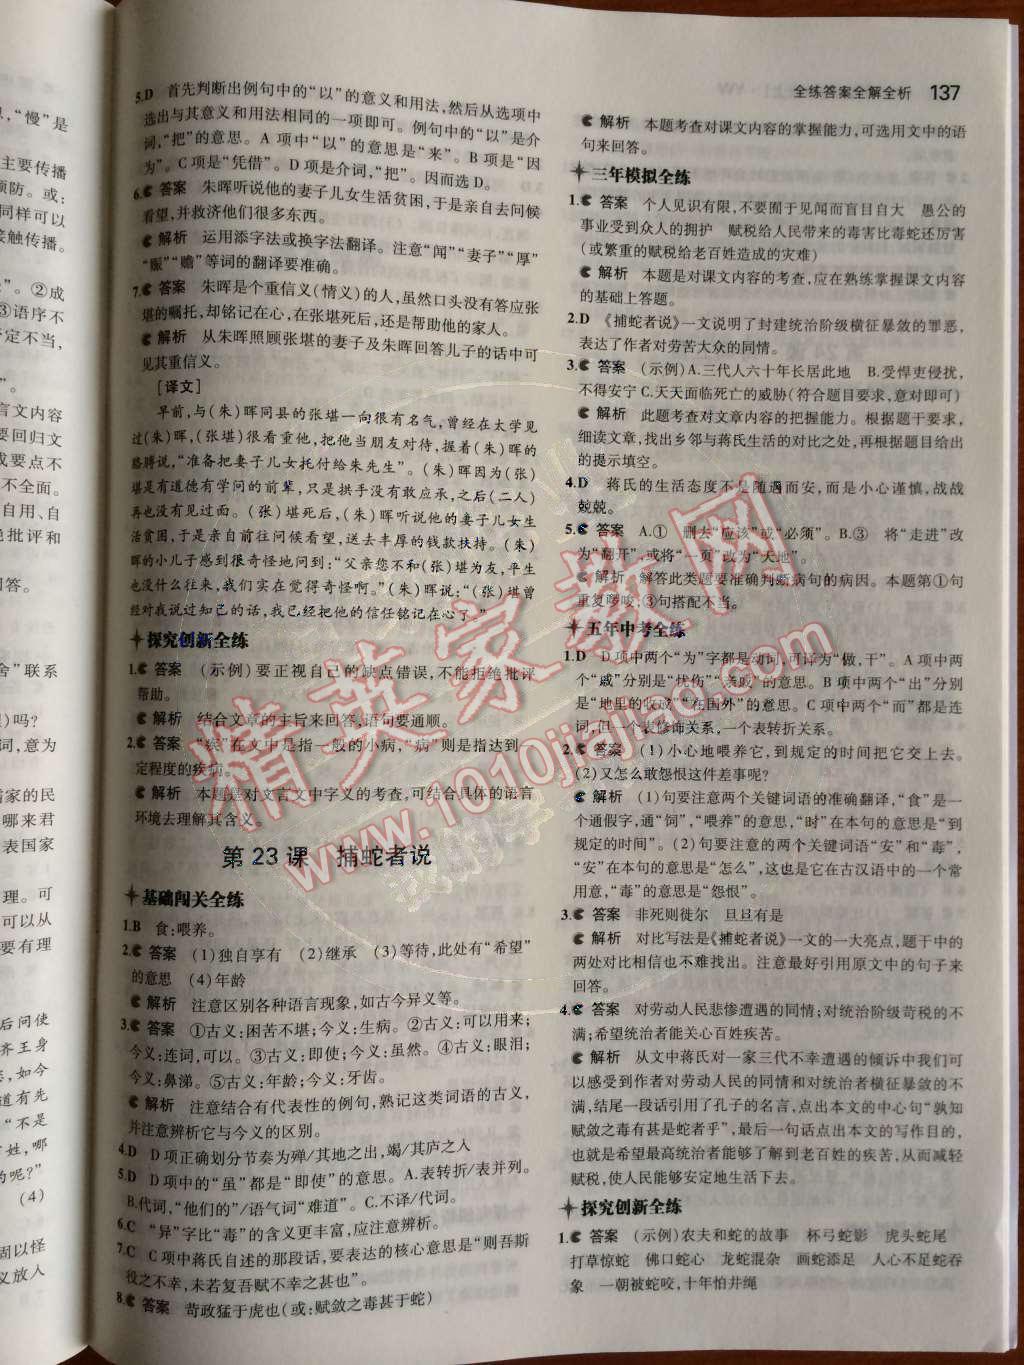 全练答案全解全析 137
,“慢”是
主要传播
预防。或:
同样可以
接触传播。
”。②成
③语序不
定不当,
”。
言文内容
要回归文
或要点不
不全面。
自用、自
绝批评和
回答。
舍”联系
)吗?
词,意为
儒家的民
哪来君
表国家
理。可
可以从
要有理
后问使
齐王身
,如今
道有先
“不是
姓,哪
的呢?”
(4)
固以怪
义放人
5.D 首先判断出例句中的“以”的意义和用法,然后从选项中
选出与其意义和用法相同的一项即可。例句中的“以”是介
词,“把”的意思。A 项中“以”的意思是“来”。B 项是“因
为”。C 项是“凭借”。D 项是介词,“把”。因而选 D。
6. 答案 朱晖听说他的妻子儿女生活贫困,于是亲自去问候
看望,并救济他们很多东西。
解析 运用添字法或换字法翻译。注意“闻”“妻子”“厚”
“赈”“赡”等词的翻译要准确。
7. 答案 朱晖是个重信义(情义)的人,虽然口头没有答应张
堪的嘱托,却铭记在心,在张堪死后,还是帮助他的家人。
解析 从朱晖照顾张堪的妻子及朱晖回答儿子的话中可
见其重信义。
[译文]
早前,与(朱)晖同县的张堪一向很有名气,曾经在太学见
过(朱)晖,(张堪)很看重他,把他当朋友对待,握着(朱)晖的
胳膊说,“准备把妻子儿女托付给朱先生”。(朱)晖因为(张)
堪是有道德有学问的前辈,只是拱手没有敢应承,之后(二人)
再也没有见过面。(张)堪死后,(朱)晖听说他的妻子儿女生
活贫困,于是亲自前往问候看望,送去丰厚的钱款扶持。(朱)
晖的小儿子感到很奇怪地问到:“父亲您不和(张)堪为友,平生
也没什么往来,我们实在觉得奇怪啊。”(朱)晖说:“(张)堪曾
经对我说过知己的话,我已经把他的信任铭记在心了。”
探究创新全练
1. 答案 (示例)要正视自己的缺点错误,不能拒绝批评
帮助。
解析 结合文章的主旨来回答,语句要通顺。
2. 答案 “疾”在文中是指一般的小病,“病”则是指达到一
定程度的疾病。
解析 本题是对文言文中字义的考查,可结合具体的语言
环境去理解其含义。
第 23 课 捕蛇者说
基础闯关全练
1.B 食:喂养。
2. 答案 (1)独自享有 (2)继承 (3)等待,此处有“希望”
的意思 (4)年龄
解析 注意区别各种语言现象,如古今异义等。
3. 答案 ①古义:困苦不堪;今义:生病。②古义:可以用来;
今义:连词,可以。③古义:即使;今义:虽然。④古义:眼泪;
今义:鼻涕。⑤古义:年龄;今义:牙齿。
解析 注意结合有代表性的例句,熟记这类词语的古义,
并注意辨析它与今义的区别。
4.D D 项正确划分节奏为殚/其地之出,竭/其庐之入
5.D D 项中的“虽”都是“即使”的意思。A.表转折/表并列。
B.代词,“他们的”/语气词“难道”。C.不译/代词。
6.C “异”字比“毒”的含义更丰富,应注意辨析。
7.C C 项中蒋氏自述的那段话,要表达的核心意思是“则吾斯
役之不幸,未若复吾赋不幸之甚也”。
8. 答案 苛政猛于虎也(或:赋敛之毒甚于蛇)
解析 本题考查对课文内容的掌握能力,可选用文中的语
句来回答。
三年模拟全练
1. 答案 个人见识有限,不要囿于见闻而盲目自大 愚公的
事业受到众人的拥护 赋税给人民带来的毒害比毒蛇还厉害
(或繁重的赋税给老百姓造成的灾难)
解析 本题是对课文内容的考查,应在熟练掌握课文内容
的基础上答题。
2.D 《捕蛇者说》一文说明了封建统治阶级横征暴敛的罪恶,
表达了作者对劳苦大众的同情。
3. 答案 (示例)A.三代人六十年长居此地 B.受悍吏侵扰,
不得安宁 C.天天面临死亡的威胁(符合题目要求,意对即可)
解析 此题考查对文章内容的把握能力。根据题干要求,
细读文章,找出乡邻与蒋氏生活的对比之处,再根据题目给出
的提示填空。
4.D 蒋氏的生活态度不是随遇而安,而是小心谨慎,战战
兢兢。
5. 答案 A.① 删去“应该”或“必须”。B.③ 将“走进”改
为“翻开”或将“一页”改为“天地”。
解析 解答此类题要准确判断病句的病因。本题第①句
重复啰唆,③句搭配不当。
五年中考全练
1.D D 项中两个“为”字都是动词,可译为“做,干”。A 项中两
个“戚”分别是“忧伤”“亲戚”的意思。B 项中两个“出”分别
是“地里的收成”“在国外”的意思。C 项中两个“而”都是连
词,但一个表修饰关系,一个表转折关系。
2. 答案 (1)小心地喂养它,到规定的时间把它交上去。
(2)又怎么敢怨恨这件差事呢?
解析 (1)句要注意两个关键词语的准确翻译,“食”是一
个通假字,通“饲”,“喂养”的意思,“时”在本句的意思是“到
规定的时间”。(2)句要注意的两个关键词语“安”和“毒”,
“安”在本句的意思是“怎么”,这也是它在古汉语中的一个常
用意,“毒”的意思是“怨恨”。
3. 答案 非死则徙尔 旦旦有是
解析 对比写法是《捕蛇者说》一文的一大亮点,题干中的
两处对比相信也不难找出。注意最好引用原文中的句子来
回答。
4. 答案 对劳动人民悲惨遭遇的同情;对统治阶级苛税的不
满;希望统治者能关心百姓疾苦。
解析 从文中蒋氏对一家三代不幸遭遇的倾诉中我们可
以感受到作者对劳动人民的同情和对统治者横征暴敛的不
满,结尾一段话引用了孔子的名言,点出本文的中心句“孰知
赋敛之毒有甚是蛇者乎”,最后一句话点出本文的写作目的,
也就是希望最高统治者能够了解到老百姓的疾苦,从而减轻
赋税,使人民能够安定地生活下去。
探究创新全练
1. 答案 (示例)农夫和蛇的故事 杯弓蛇影 虎头蛇尾
打草惊蛇 佛口蛇心 龙蛇混杂 画蛇添足 人心不足蛇吞
象 一朝被蛇咬,十年怕井绳
精英家教网
www.1010jiajiao.com